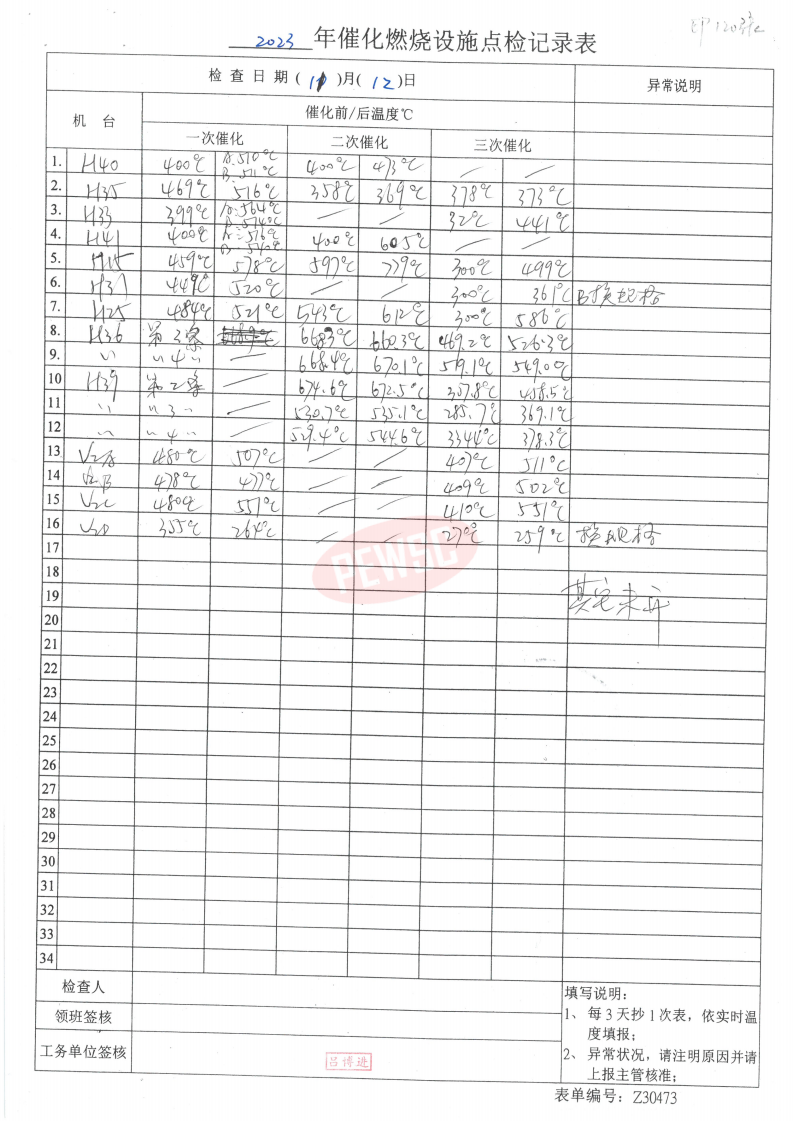 印120张
2023 年催化燃烧设施点检记录表
检 查 日 期 ( 11 )月( 12 )日 异常说明
机 台 催化前/后温度℃
一次催化 二次催化 三次催化
1. H40 400℃ A:510℃ B:511℃ 400℃ 473℃ / /
2. H35 469℃ 516℃ 358℃ 369℃ 378℃ 373℃
3. H33 399℃ A:564℃ B:574℃ / / 32℃ 441℃
4. H41 400℃ A:516℃ B:540℃ 400℃ 605℃ / /
5. H15 459℃ 578℃ 597℃ 779℃ 300℃ 499℃
6. H37 449℃ 520℃ / / 300℃ 361℃ B换规格
7. H25 484℃ 521℃ 543℃ 612℃ 300℃ 586℃
8. H36 第3条 668.3℃ 660.3℃ 469.2℃ 526.3℃
9. 〃 〃4〃 / 668.4℃ 670.1℃ 519.1℃ 549.0℃
10 H39 第2条 / 674.6℃ 672.5℃ 307.8℃ 458.5℃
11 〃 〃3〃 / 530.7℃ 535.1℃ 285.7℃ 369.1℃
12 〃 〃4〃 / 529.4℃ 544.6℃ 334.1℃ 378.3℃
13 V2A 480℃ 507℃ / / 407℃ 511℃
14 V2B 478℃ 477℃ / / 409℃ 502℃
15 V2C 480℃ 551℃ / / 410℃ 551℃
16 V2D 355℃ 264℃ / / 27℃ 259℃ 换规格
PCWSC
17
18
19 其它未开
20
21
22
23
24
25
26
27
28
29
30
31
32
33
34
检查人
领班签核
工务单位签核 吕博进
填写说明：
1、 每 3 天抄 1 次表，依实时温
度填报；
2、 异常状况，请注明原因并请
上报主管核准；
表单编号：Z30473